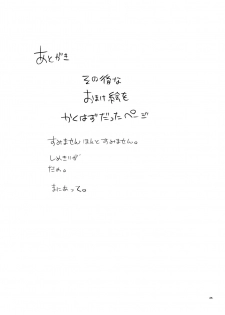 あとがき
その後な
おまけ絵を
かくはずだったページ
すみません ほんと すみません。
しめきりが
だめ。
まにあって。